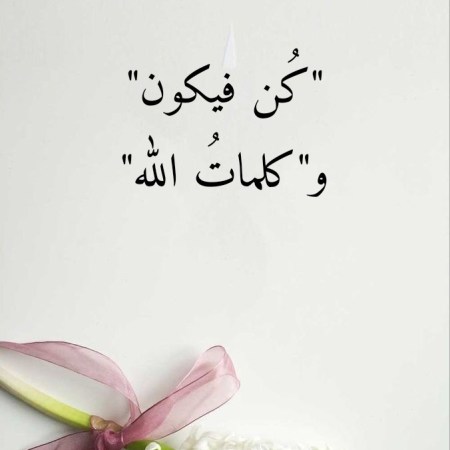 "كُن فيكون"
و"كلماتُ الله"